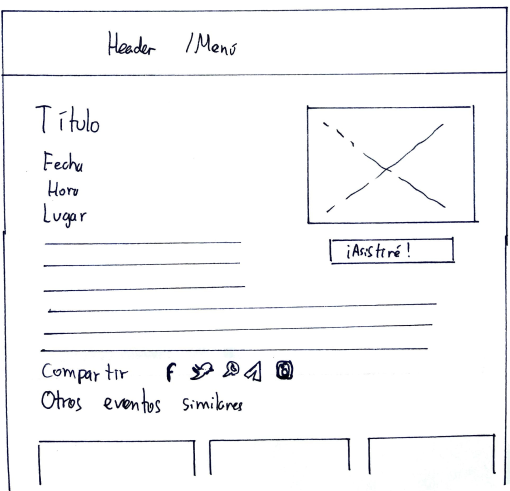 Header /Menú
Título
Fecha
Hora
Lugar
¡Asistiré!
Compartir f
Otros eventos similares